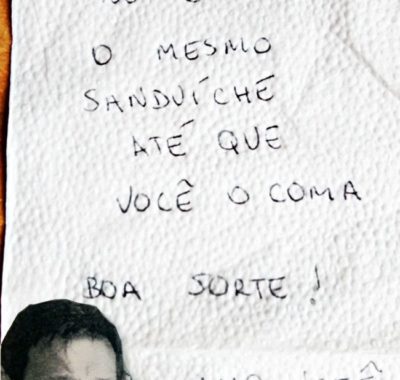 O MESMO
SANDUÍCHE
ATÉ QUE
VOCÊ O COMA
BOA SORTE!